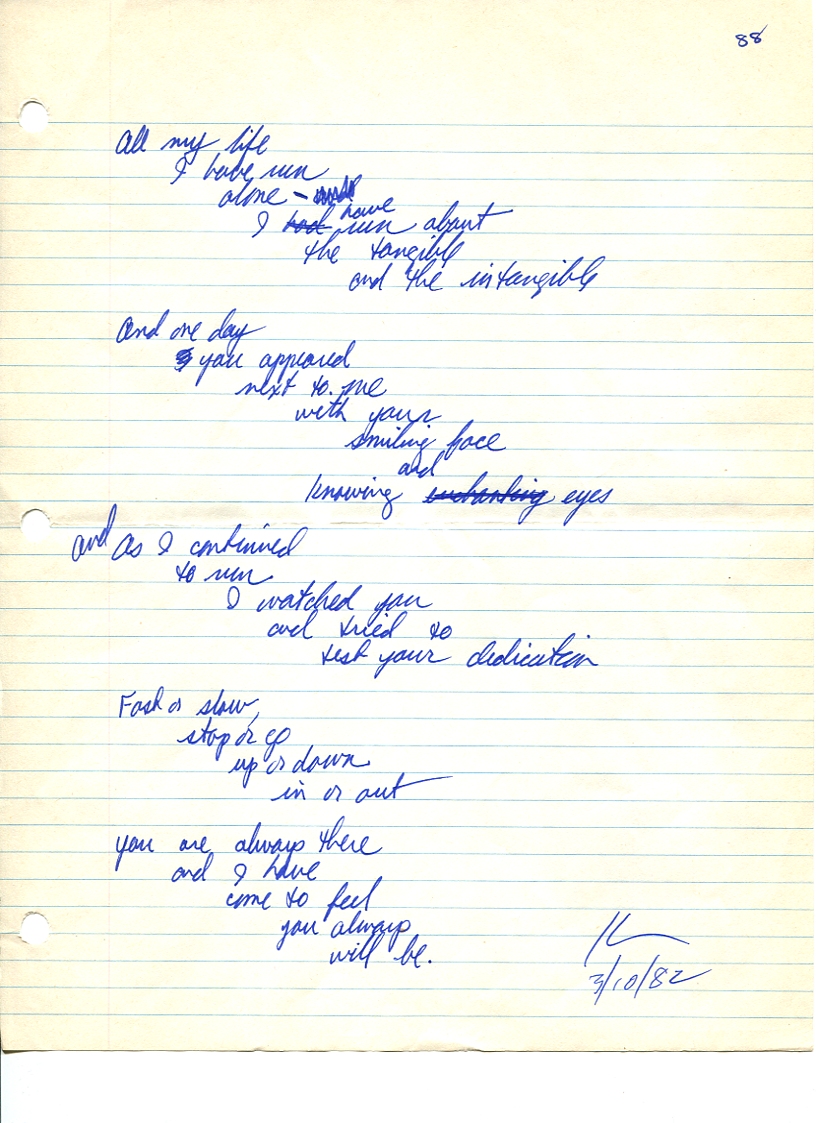 88
All my life
I have run
alone –
I had have run about
the tangible
and the intangible
And one day
you appeared
next to me
with your
smiling face
and
knowing enchanting eyes
and As I continued
to run
I watched you
and tried to
test your dedication
Fast or slow,
stop or go
up or down
in or out
you are always there
and I have
come to feel
you always
will be.
3/10/82